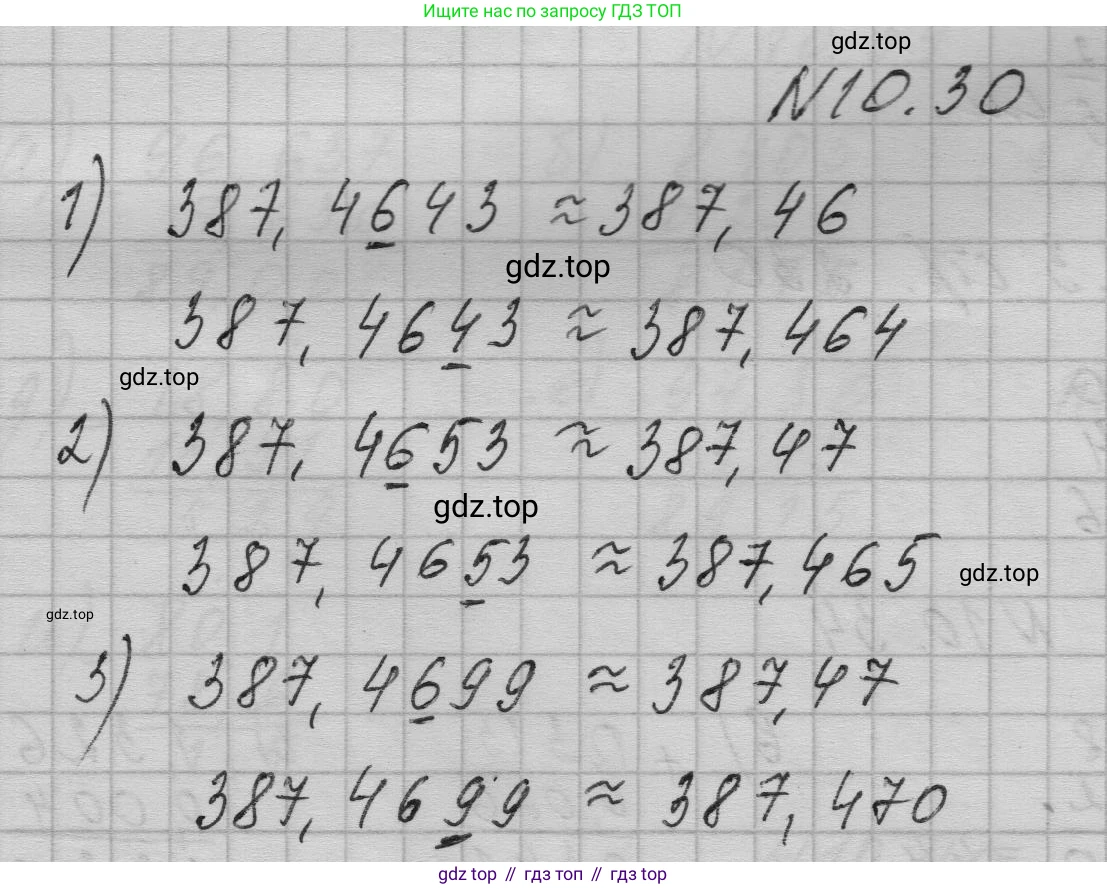 Ищите нас по запросу ГДЗ ТОП
gdz.top
N10.30
1) 387,4643 ≈ 387,46
gdz.top
387,4643 ≈ 387,464
gdz.top
2) 387,4653 ≈ 387,47
gdz.top
387,4653 ≈ 387,465
gdz.top
gdz.top
3) 387,4699 ≈ 387,47
387,4699 ≈ 387,470
gdz top // гдз топ // gdz top